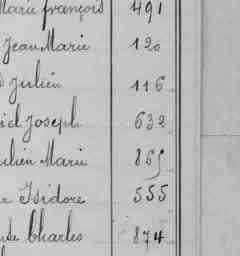 Marie françois 491
Jean Marie 120
Julien 116
Joseph 632
ulien Marie 865
r Isidore 555
Charles 874